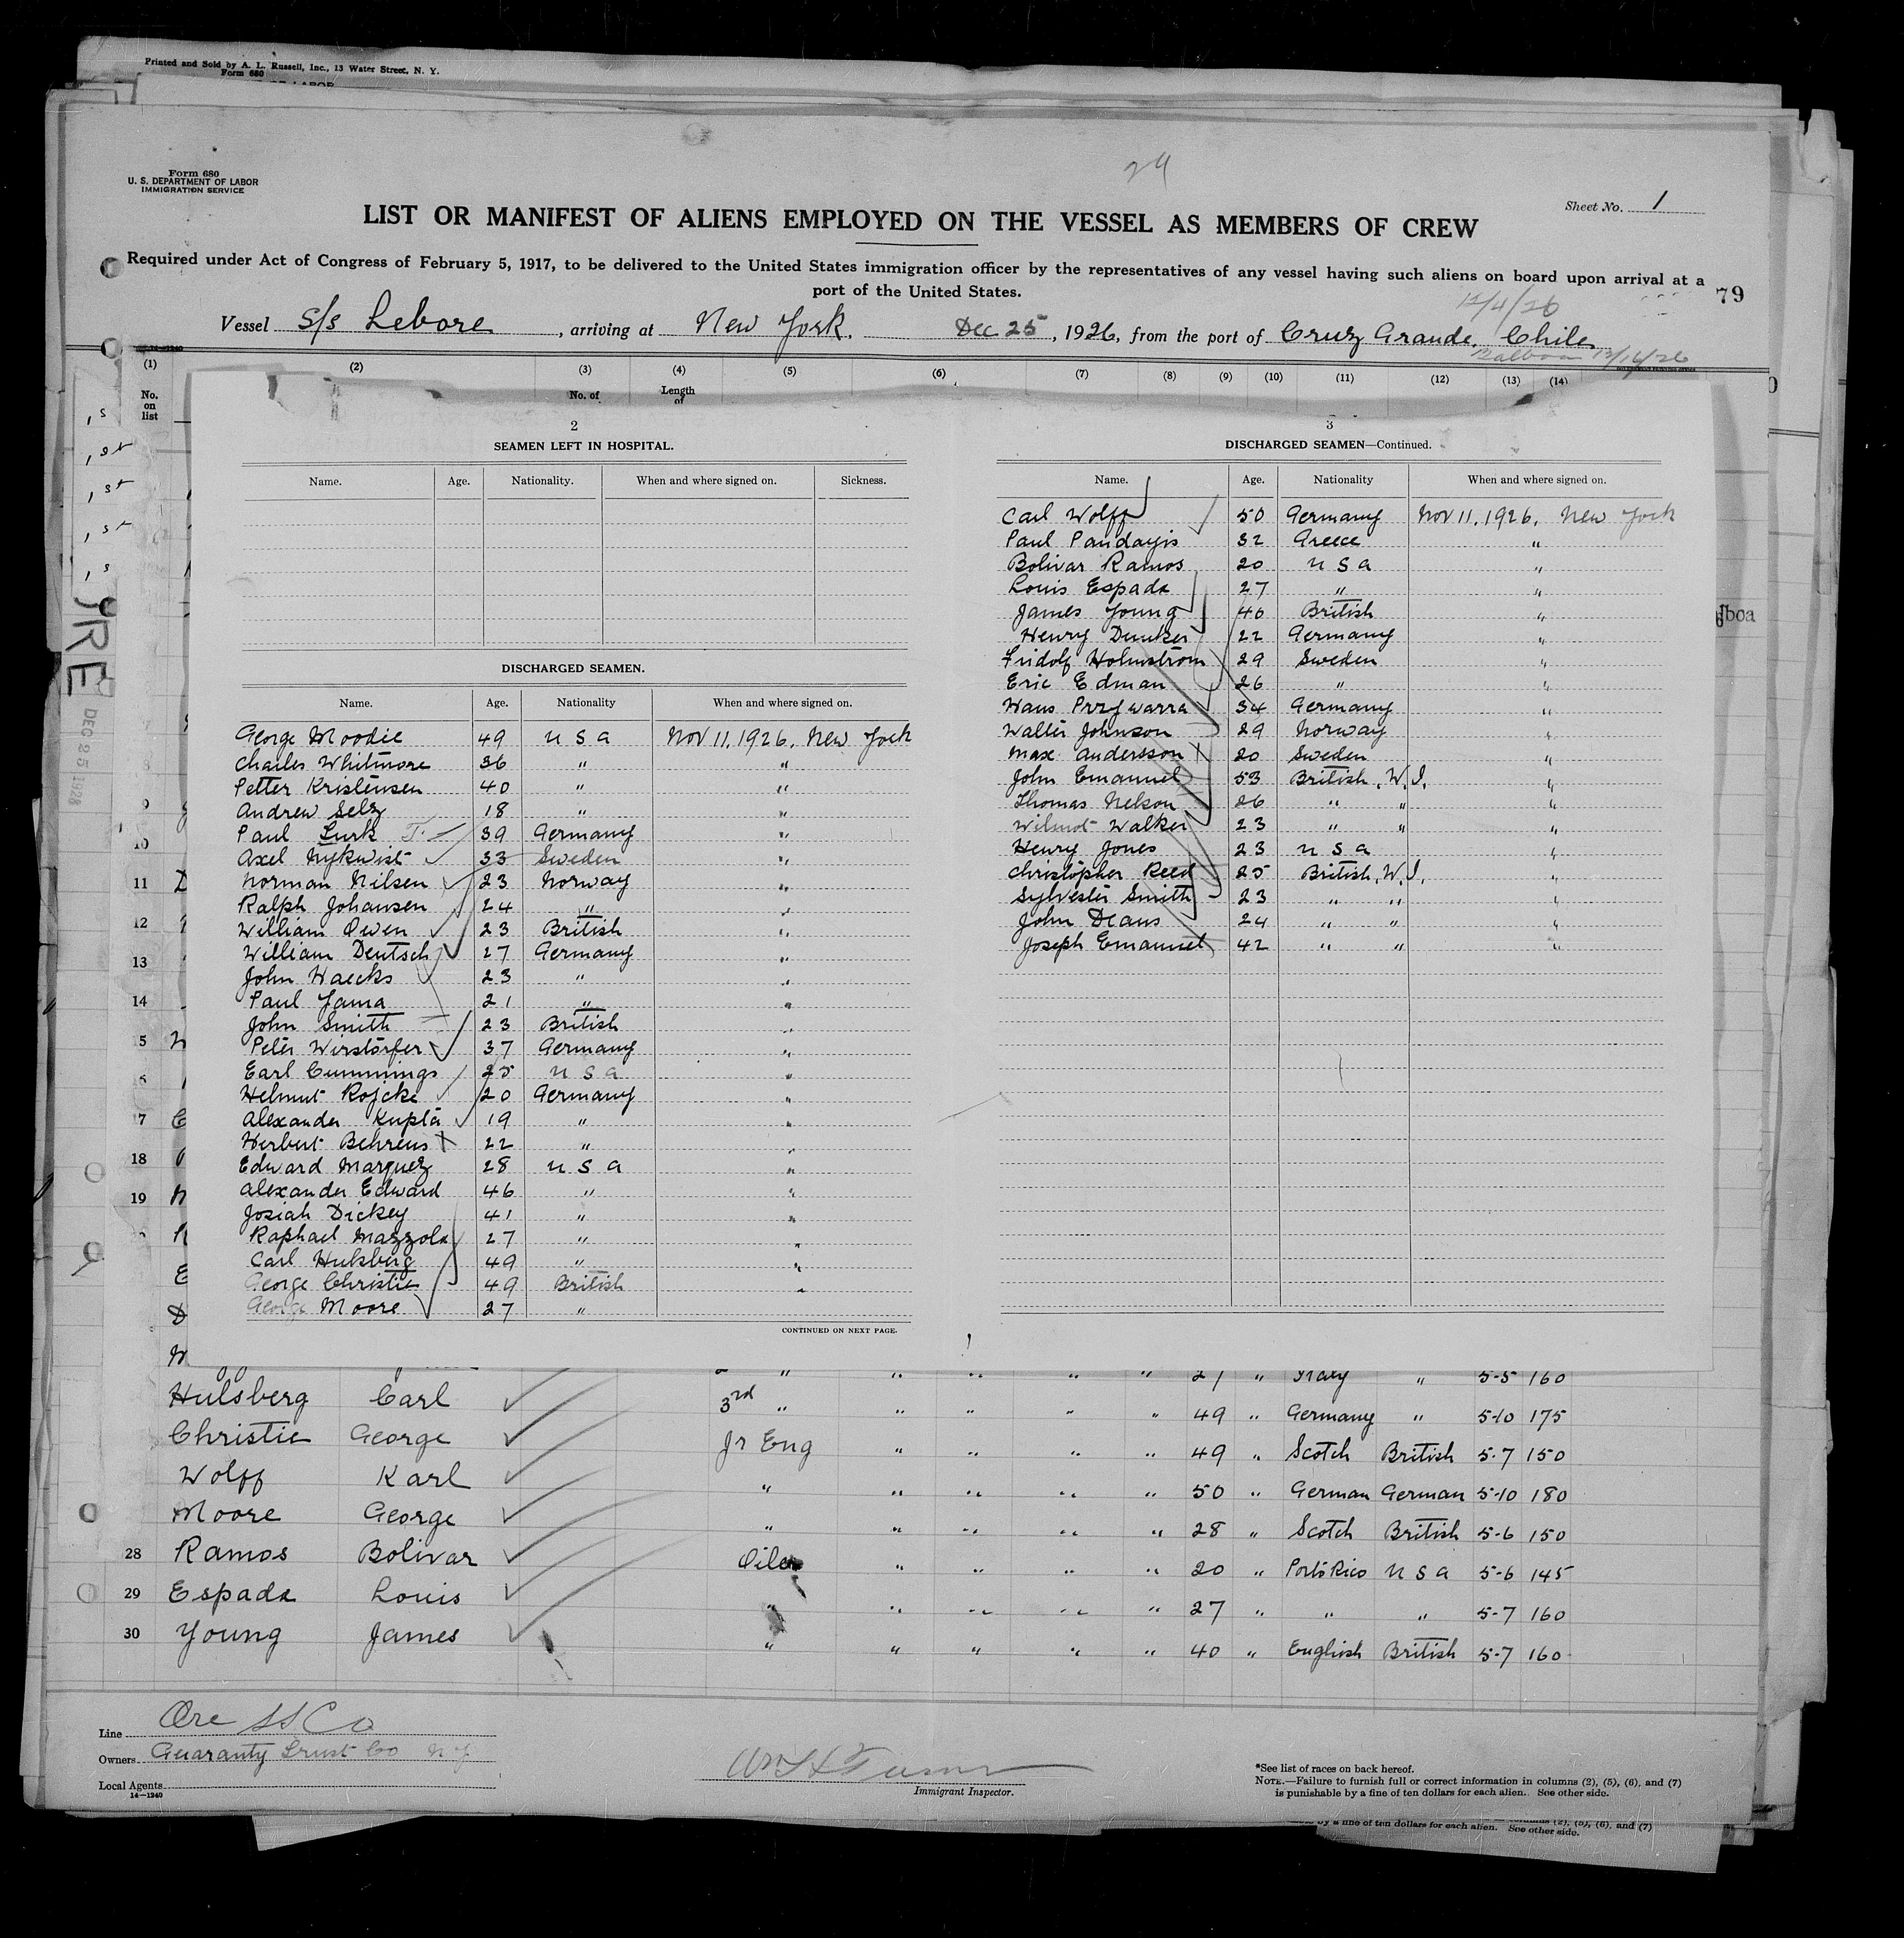 Printed and Sold by A. L. Russell, Inc., 13 Water Street, N. Y.
Form 680
29
Form 680
U. S. DEPARTMENT OF LABOR
IMMIGRATION SERVICE
Sheet No. 1
LIST OR MANIFEST OF ALIENS EMPLOYED ON THE VESSEL AS MEMBERS OF CREW
Required under Act of Congress of February 5, 1917, to be delivered to the United States immigration officer by the representatives of any vessel having such aliens on board upon arrival at a
port of the United States.
79
12/4/26
Vessel S/s Lebore, arriving at New York. Dec 25, 1926, from the port of Cruz Grande, Chile
Balboa 12/16/26
14-1240
(1) (2) (3) (4) (5) (6) (7) (8) (9) (10) (11) (12) (13) (14)
No. on list No. of Length of
2
SEAMEN LEFT IN HOSPITAL.
Name. Age. Nationality. When and where signed on. Sickness.
DISCHARGED SEAMEN.
Name. Age. Nationality When and where signed on.
George Moodie 49 U S A Nov 11, 1926, New York
Charles Whitmore 36 " "
Petter Kristensen 40 " "
Andrew Selz 18 " "
Paul Lurk T. 39 Germany "
Axel Nykwist 33 Sweden "
Norman Nilsen 23 Norway "
Ralph Johansen 24 " "
William Owen 23 British "
William Deutsch 27 Germany "
John Waecks 23 " "
Paul Jama 21 " "
John Smith 23 British "
Peter Wirstorfer 37 Germany "
Earl Cummings 25 U S A "
Helmut Rojcke 20 Germany "
Alexander Kupta 19 " "
Herbert Behrens 22 " "
Edward Marquez 28 U S A "
Alexander Edward 46 " "
Josiah Dickey 41 " "
Raphael Mazzola 27 " "
Carl Hulsberg 49 " "
George Christie 49 British "
George Moore 27 " "
CONTINUED ON NEXT PAGE.
3
DISCHARGED SEAMEN—Continued.
Name. Age. Nationality When and where signed on.
Carl Wolff 50 Germany Nov 11, 1926, New York
Paul Pandazis 32 Greece "
Bolivar Ramos 20 U S A "
Louis Espada 27 " "
James Young 40 British "
Henry Dunker 22 Germany "
Fridolf Holmstrom 29 Sweden "
Eric Edman 26 " "
Hans Przywarra 34 Germany "
Walter Johnson 29 Norway "
Max Andersson 20 Sweden "
John Emanuel 53 British W.I. "
Thomas Nelson 26 " " "
Wilmot Walker 23 " " "
Henry Jones 23 U S A "
Christopher Reed 25 British W.I. "
Sylvester Smith 23 " " "
John Deans 24 " " "
Joseph Emanuel 42 " " "
DEC 25 1926
10
11
12
13
14
18
19
" " " " " 21 " Italy " 5-5 160
Hulsberg Carl 3rd " " " " " 49 " Germany " 5-10 175
Christie George Jr Eng " " " " 49 " Scotch British 5-7 150
Wolff Karl " " " " " 50 " German German 5-10 180
Moore George " " " " " 28 " Scotch British 5-6 150
28 Ramos Bolivar Oiler " " " " 20 " Porto Rico U S A 5-6 145
29 Espada Louis " " " " " 27 " " " 5-7 160
30 Young James " " " " " 40 " English British 5-7 160
Line Ore SS Co
Owners Guaranty Trust Co N Y
Local Agents
14—1240
Immigrant Inspector.
*See list of races on back hereof.
NOTE.—Failure to furnish full or correct information in columns (2), (5), (6), and (7)
is punishable by a fine of ten dollars for each alien. See other side.
by a fine of ten dollars for each alien. See other side.